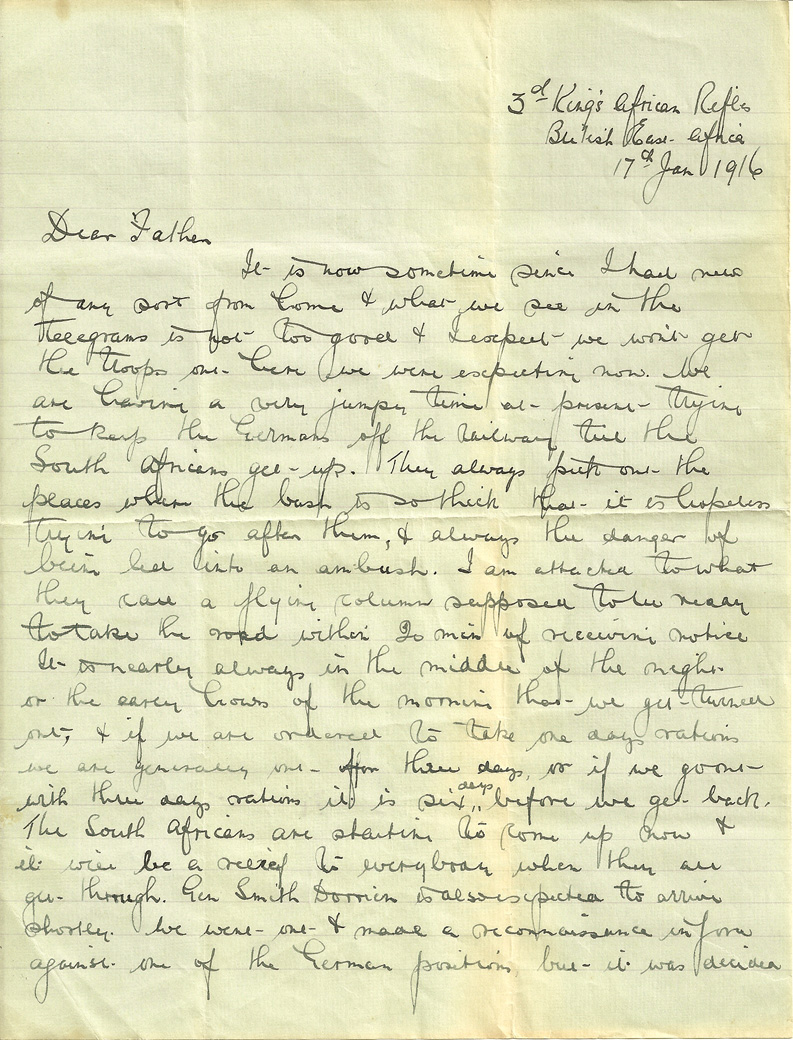 3rd King's African Rifles
British East Africa
17th Jan 1916
Dear Father
It is now sometime since I had news
of any sort from home & what we see in the
telegrams is not too good & I expect we wont get
the troops out here we were expecting now. We
are having a very jumpy time at present trying
to keep the Germans off the railway till the
South Africans get up. They always pick out the
places where the bush is so thick that it is hopeless
trying to go after them, & always the danger of
being led into an ambush. I am attached to what
they call a flying column supposed to be ready
to take the road within 20 min of receiving notice
It is nearly always in the middle of the night
or the early hours of the morning that we get turned
out, & if we are ordered to take one days rations
we are generally out for three days, or if we go out
with three days rations it is six days before we get back.
The South Africans are starting to come up now &
it will be a relief to everybody when they all
get through. Gen Smith Dorrien is also expected to arrive
shortly. We went out & made a reconnaissance in force
against one of the German positions, but it was decided